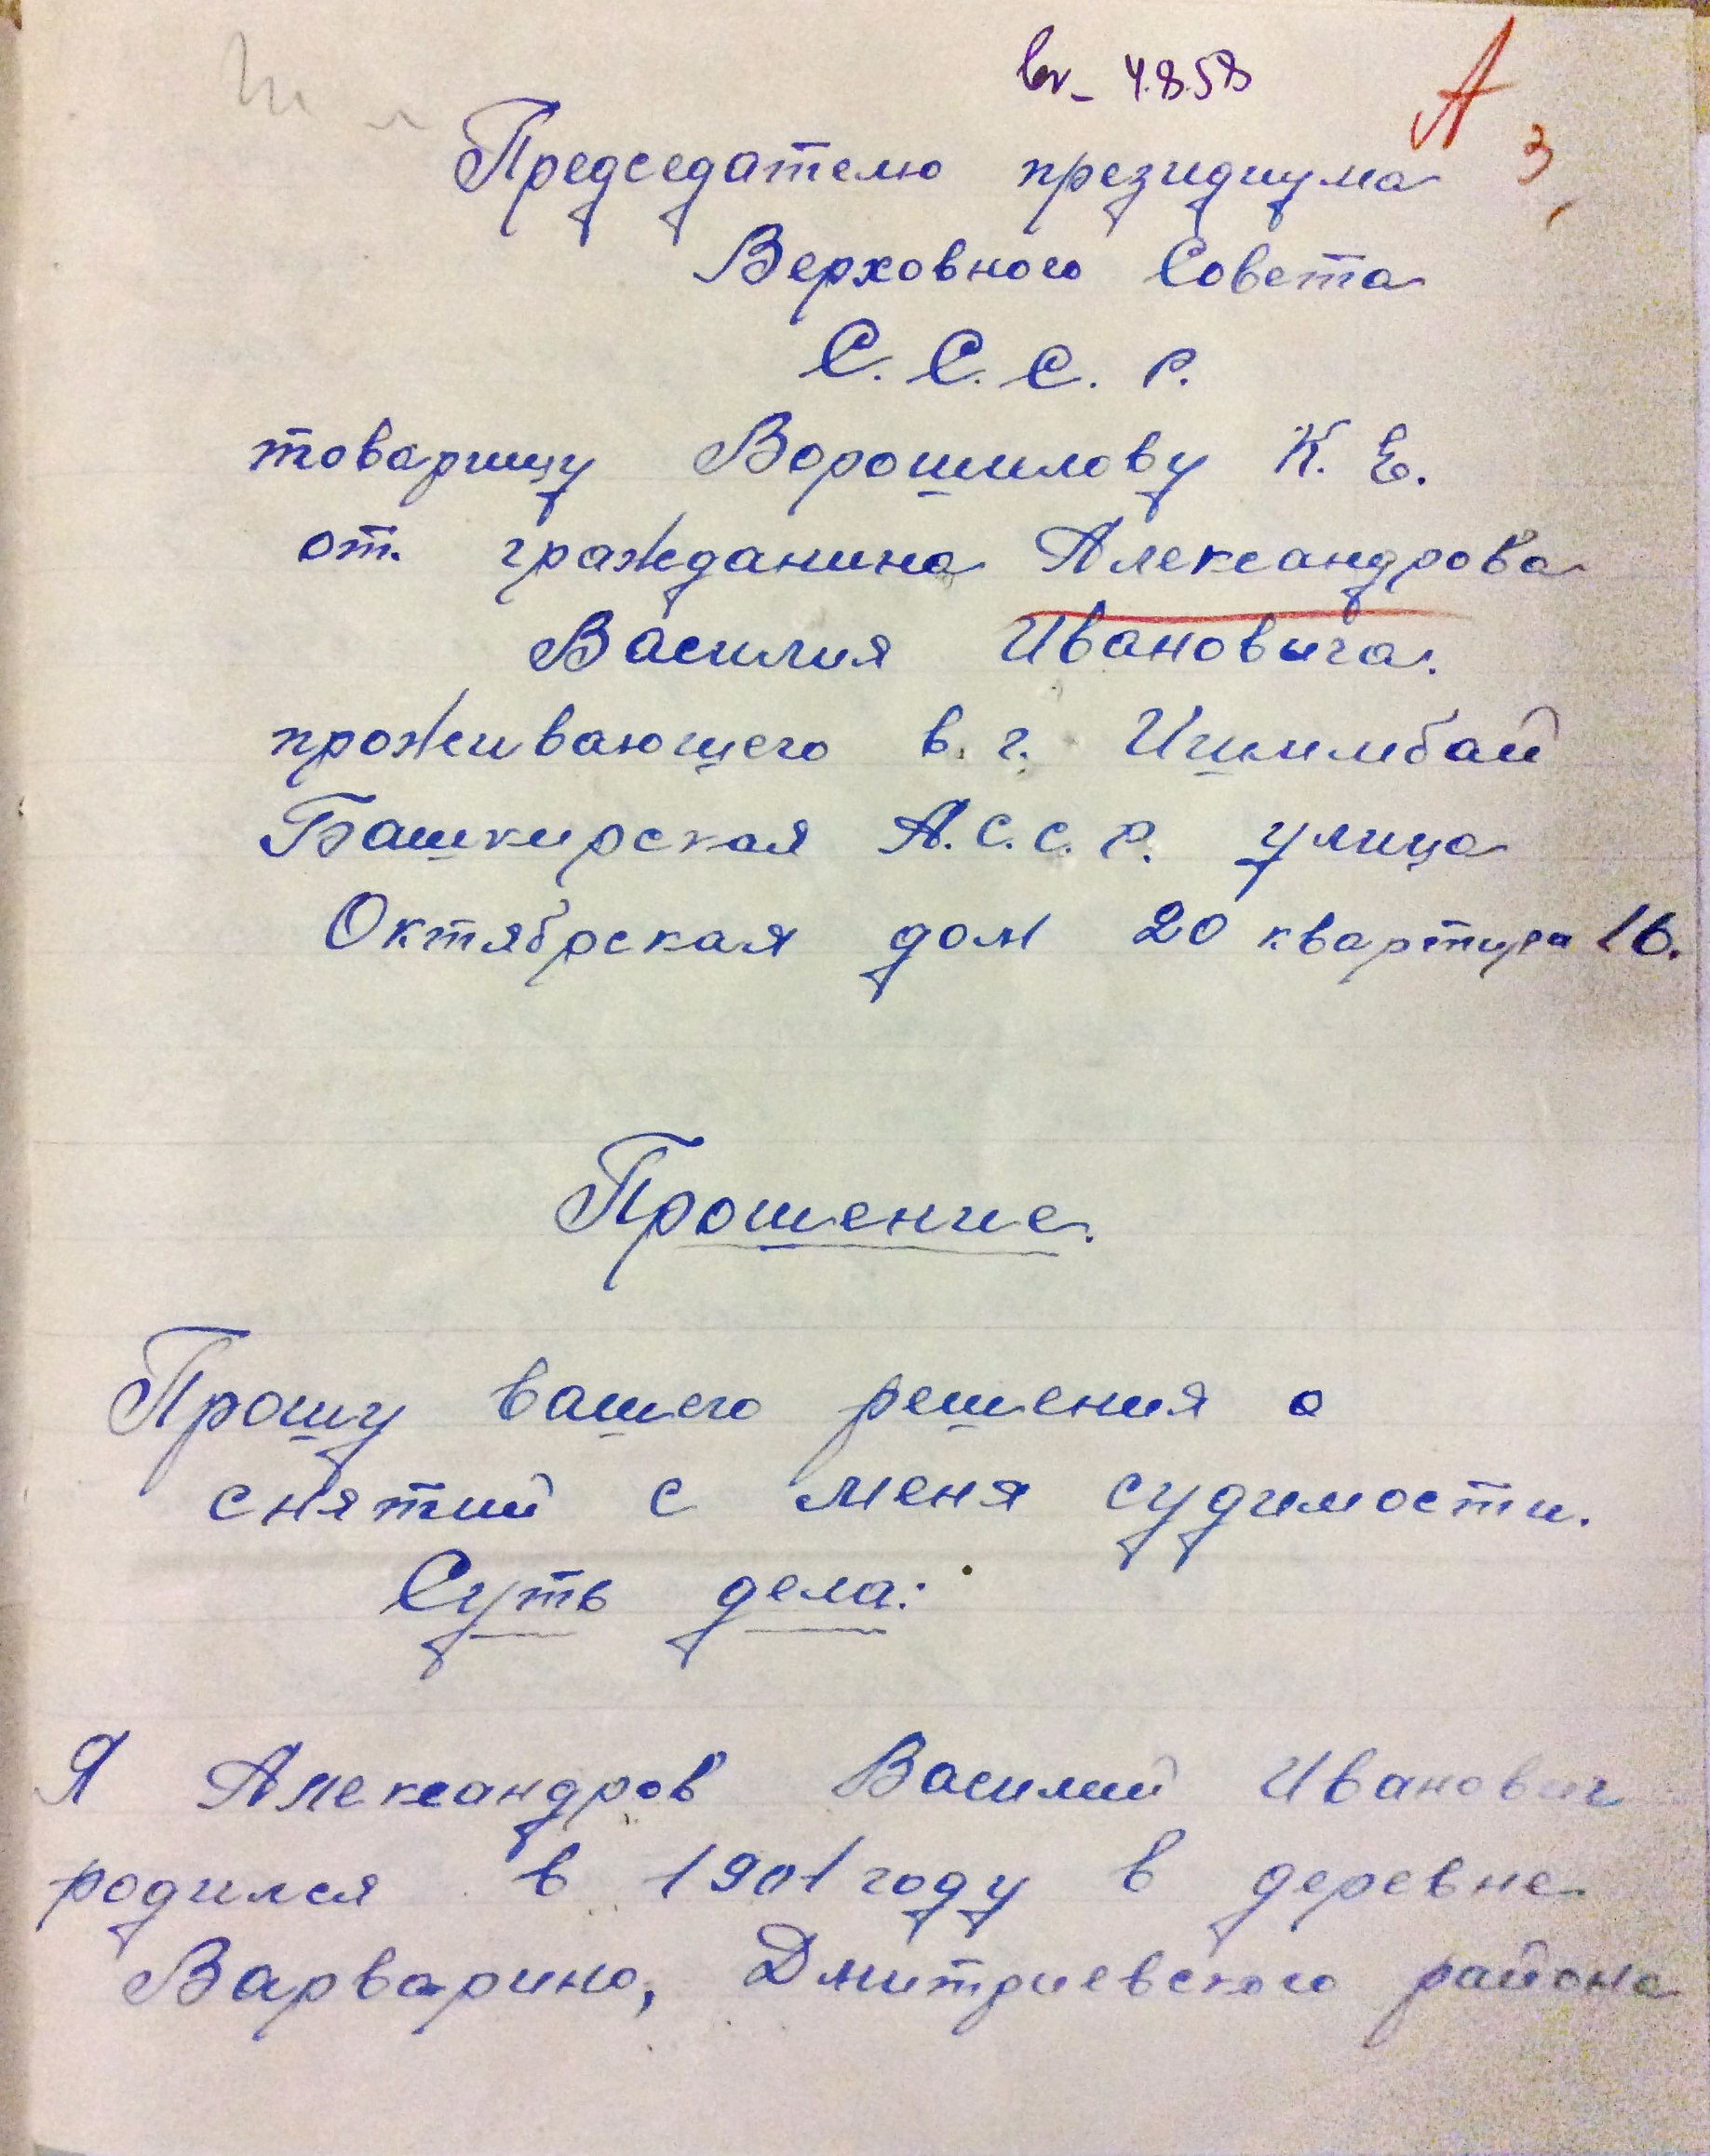 4.8.58
А
3
Председателю президиума
Верховного Совета
С. С. С. Р.
товарищу Ворошилову К. Е.
от гражданина Александрова
Василия Ивановыча.
проживающего в. г. Ишимбай
Башкирская А.С.С.Р. улица
Октябрская дом 20 квартира 16.
Прошение.
Прошу вашего решения о
снятий с меня судимости.
Суть дела:
Я Александров Василий Иванович
родился в 1901 году в деревне
Варварино, Дмитриевского района